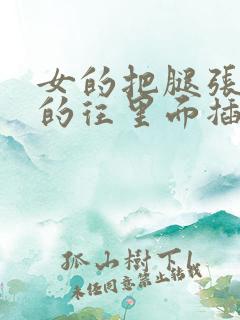 女的把腿張
的往里而插
孤山樹下
未经同意禁止转载